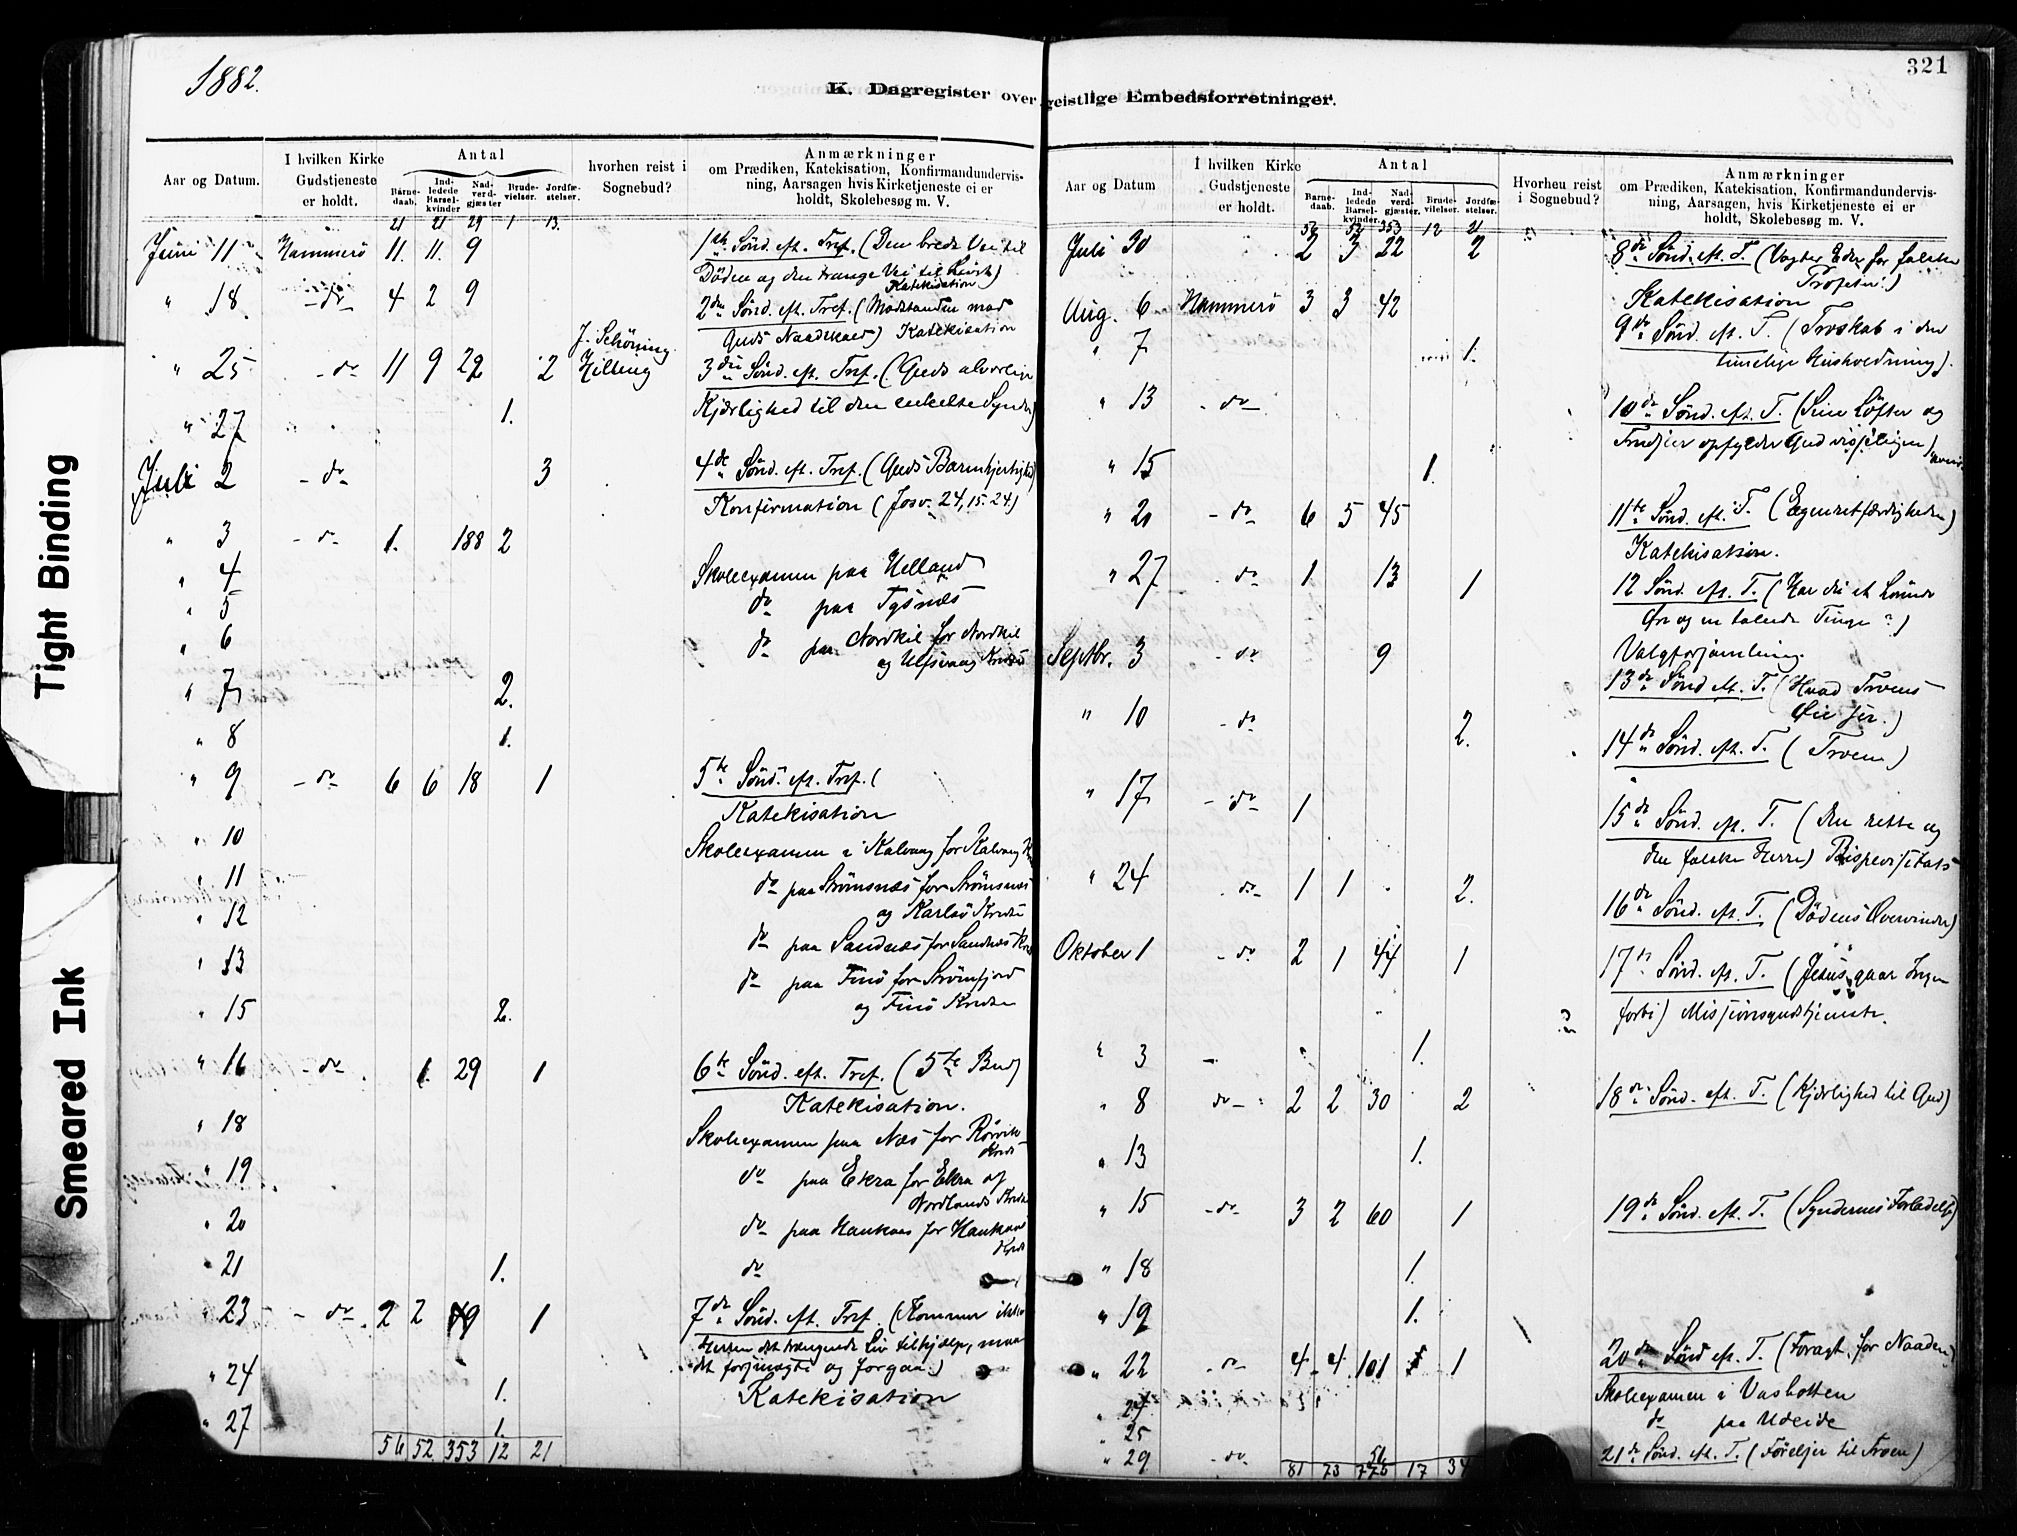 1882.
K. Dagregister over geistlige Embedsforretninger.
321
Tight Binding
Smeared Ink
Aar og Datum.
I hvilken Kirke Gudstjeneste er holdt.
Antal
Barne-daab.
Ind-ledede Barsel-kvinder
Nad-verd-gjæster
Brude-vielser.
Jordfæ-stelser.
hvorhen reist i Sognebud?
Anmærkninger
om Prædiken, Katekisation, Konfirmandundervis-
ning, Aarsagen hvis Kirketjeneste ei er
holdt, Skolebesøg m. V.
21 21 29 1 13.
Juni 11 Hammerö 11. 11. 9 1ste Sönd. eft. Tref. (Den brede Vei til
Döden og den trange Vei til Livet)
Katekisation
" 18 - do 4 2 9 2den Sönd. eft. Tref. (Modstanden mod
Guds Naadekald) Katekisation
" 25 - do 11 9 22 2 J. Schöning 3die Sönd. eft. Tref. (Guds alvorlige
Kjærlighed til den enkelte Synder)
" 27 1.
Juli 2 - do 3 4de Sönd. eft. Tref. (Guds Barmhjertighed)
Konfirmation (Josv. 24, 15-24)
" 3 - do 1. 188 2
" 4 Skoleexamen paa Helland
" 5 do paa Tysnæs
" 6 do paa Nordkil for Nordkil
og Ulfsvaag Kredse
" 7 2.
" 8 1.
" 9 - do 6 6 18 1 5te Sönd. eft. Tref. (
Katekisation
" 10 Skoleexamen i Kalvaag for Kalvaag
" 11 do paa Strömsnæs for Strömsnæs
" 12 og Karlsö Kredse
do paa Sandnæs for Sandnæs
" 13 do paa Finö for Strömfjord
og Finö Kredse
" 15 2.
" 16 - do 1. 29 1 6te Sönd. eft. Tref. (5te Bud)
Katekisation.
" 18 Skoleexamen paa Næs for Rörvik
Kreds
" 19 do paa Ekra for Ekra og
Nordlands Kredse
" 20 do paa Haukaas for Haukaas
Kreds
" 21 1. do
" 23 - do 2 2 1 7de Sönd. eft. Tref. (Kommer ikke
Herren det trængende Liv tilhjælp, maa
det forsmægte og forgaa.)
" 24 1. Katekisation
" 27 1.
56 52 353 12 21
Aar og Datum
I hvilken Kirke Gudstjeneste er holdt.
Antal
Barne-daab.
Ind-ledede Barsel-kvinder.
Nad-verd-gjæster.
Brude-vilelser.
Jordfæ-stelser.
Hvorheu reist i Sognebud?
Anmærkninger
om Prædiken, Katekisation, Konfirmandundervis-
ning, Aarsagen, hvis Kirketjeneste ei er
holdt, Skolebesøg m. V.
56 52 353 12 21
Juli 30 2 3 22 2 8de Sönd. eft. T. (Vogter Eder for falske
Profeter)
Katekisation
Aug. 6 Hammerö 3 3 42 9de Sönd. eft. T. (Troskab i den
timelige Husholdning).
" 7 1.
" 13 - do 10de Sönd. eft. T. (Sine Löfter og
Trudsler opfylder Gud
" 15 1.
" 20 - do 6 5 45 11te Sönd. eft. T. (Egenretfærdigheden)
Katekisation.
" 27 - do 1 13 1 12 Sönd. eft. T. (Har du et
Öre og en talende Tunge?)
Valgforsamling.
Septbr. 3 - do 9 13de Sönd eft. T. (Hvad Troens
Öie ser.)
" 10 - do 2. 14de Sönd. eft. T. (Troen)
" 17 - do 1 15de Sönd. eft. T. (Den rette og
den falske Herre) Bispevisitats
" 24 - do 1 1 2. 16de Sönd. eft. T. (Dödens Overvinder)
Oktober 1 - do 2 1 44 1 17de Sönd. eft. T. (Jesus gaar Ingen
forbi) Missionsgudstjeneste.
" 3 - 1.
" 8 do - 2 2 30 2 18de Sönd. eft. T. (Kjærlighed til Gud)
" 13 1.
" 15 - do 3 2 60 1 19de Sönd. eft. T. (Syndernes Forladelse)
" 18 1.
" 19 1.
" 22 - do 4 4 101 1 20de Sönd eft. T. (Foragt for Naaden)
" 24 Skoleexamen i Vasbotten
" 25 do paa Udeide
" 29 - do 50 21de Sönd. eft. T. (Förelser til Troen)
81 73 17 34